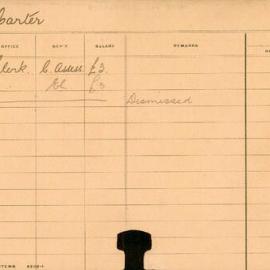 Carter
OFFICE DEP'T SALARY REMARKS
Clerk C. Assn. £3
El £3
Dismissed